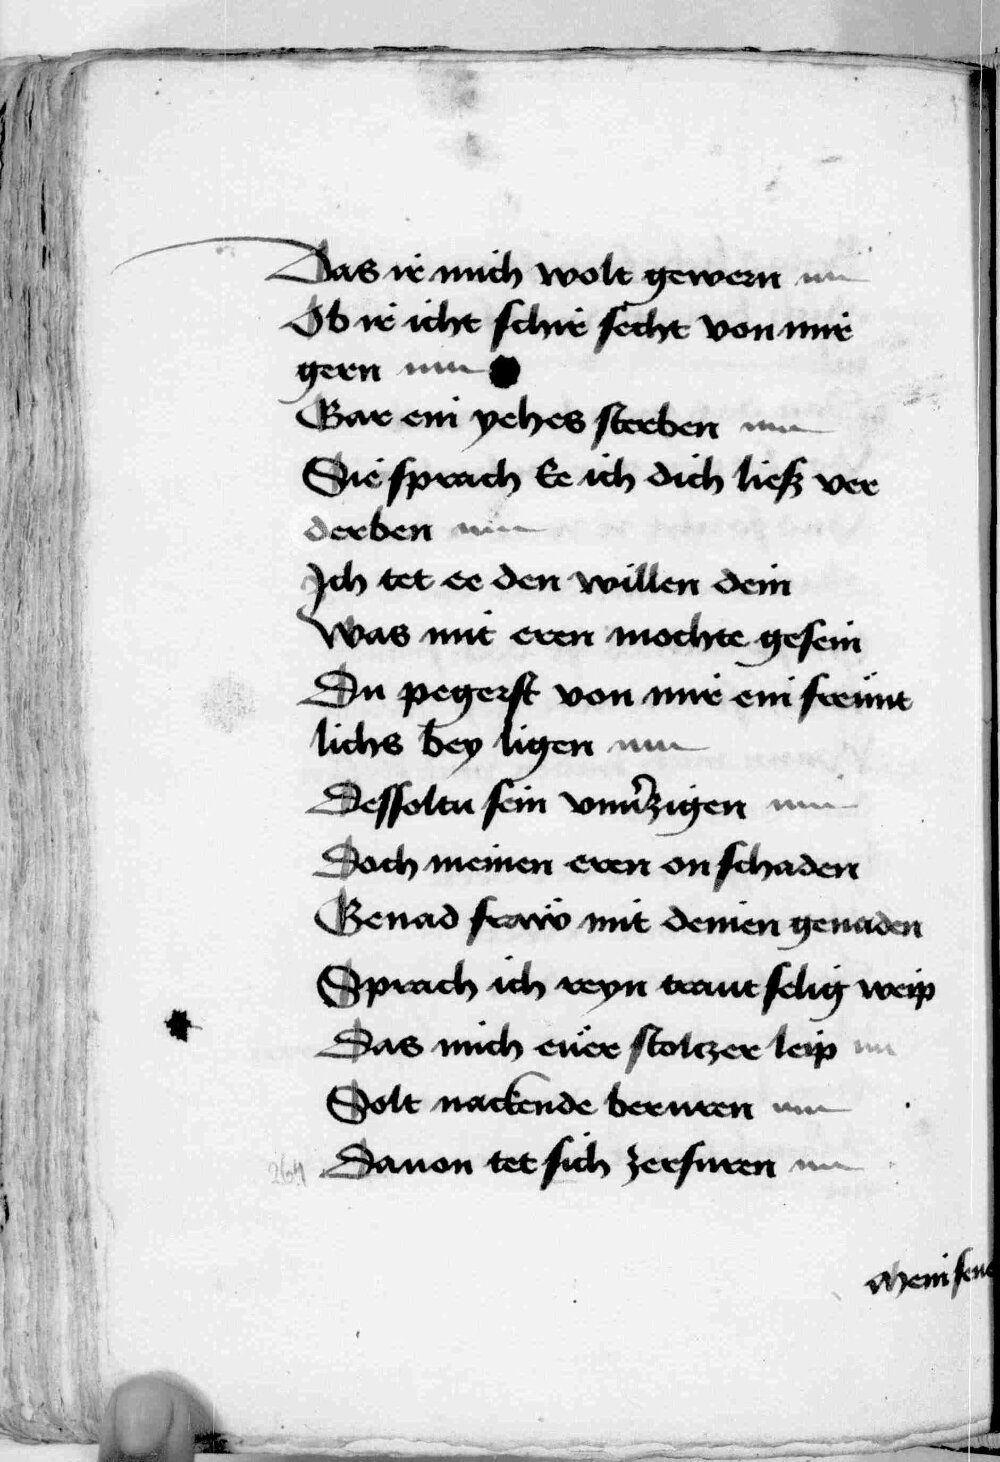 Das ir mich wolt gewern
Ob ir icht schir secht von mir
gern
Gar ein yehes sterben
Sie sprach Ee ich dich ließ ver
derben
Ich tet ee den willen dein
Was mit eren mochte gesein
Du pegerst von mir ein freünt
lichs bey ligen
Des soltu sein vnuerzigen
Doch meinen eren on schaden
Genad fraẅ mit deinen genaden
Sprach ich reyn traut selig weip
Das mich eüer stolczer leip
Solt nackende beruren
Dauon tet sich zerfuren
264
Mein